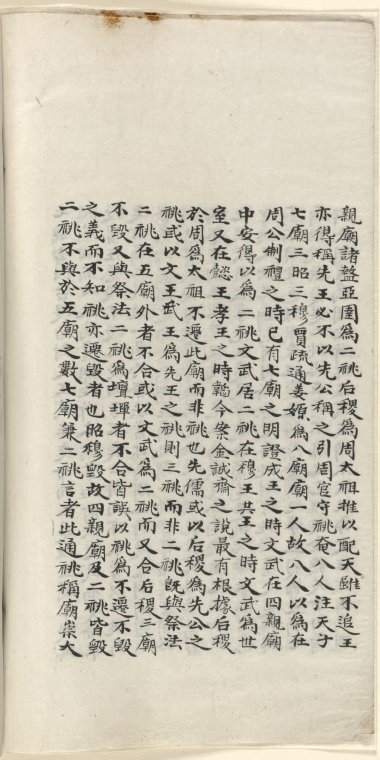 親廟諸盩亞圉爲二祧后稷爲周太祖推以配天雖不追王
亦得稱先王必不以先公稱之引周官守祧奄八人注天子
七廟三昭三穆賈疏通姜嫄爲八廟廟一人故八人以爲在
周公制禮之時已有七廟之明證成王之時文武在四親廟
中安得以爲二祧文武居二祧在穆王共王之時文武爲世
室又在懿王孝王之時鶴令案金誠齋之說最有根據后稷
於周爲太祖不遷此廟而非祧也先儒或以后稷爲先公之
祧或以文王武王爲先王之祧則三祧而非二祧旣與祭法
二祧在五廟外者不合或以文武爲二祧而又合后稷三廟
不毀又與祭法二祧爲壇墠者不合皆誤以祧爲不遷不毀
之義而不知祧亦遷毀者也昭穆毀故四親廟及二祧皆毀
二祧不與於五廟之數七廟兼二祧言者此通祧稱廟崇大